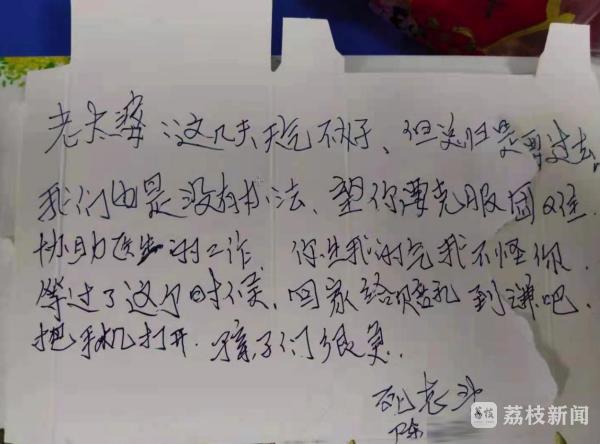 老太婆：这几天天气不好、但总归是要过去
我们也是没有办法、望你要克服困难.
协助医生的工作 你生我的气我不怪你.
等过了这个时候、回家给你赔礼到谦吧、
把手机打开.孩子们很急.
老
陈
荔枝 荔枝新闻